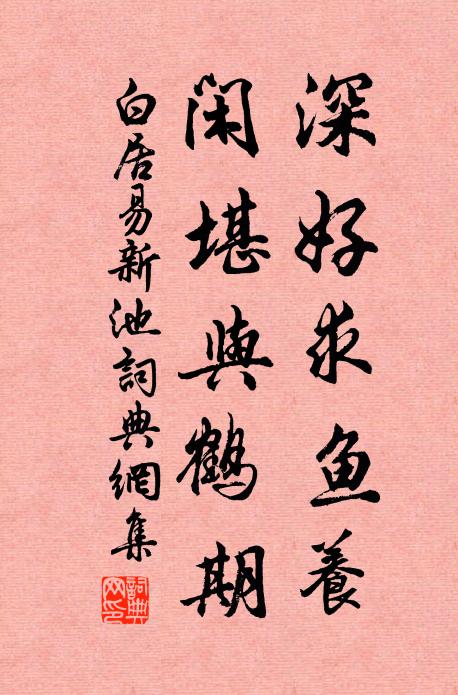 深好求鱼養
閑堪與鶴期
白居易新池詞典網集
詞典网印